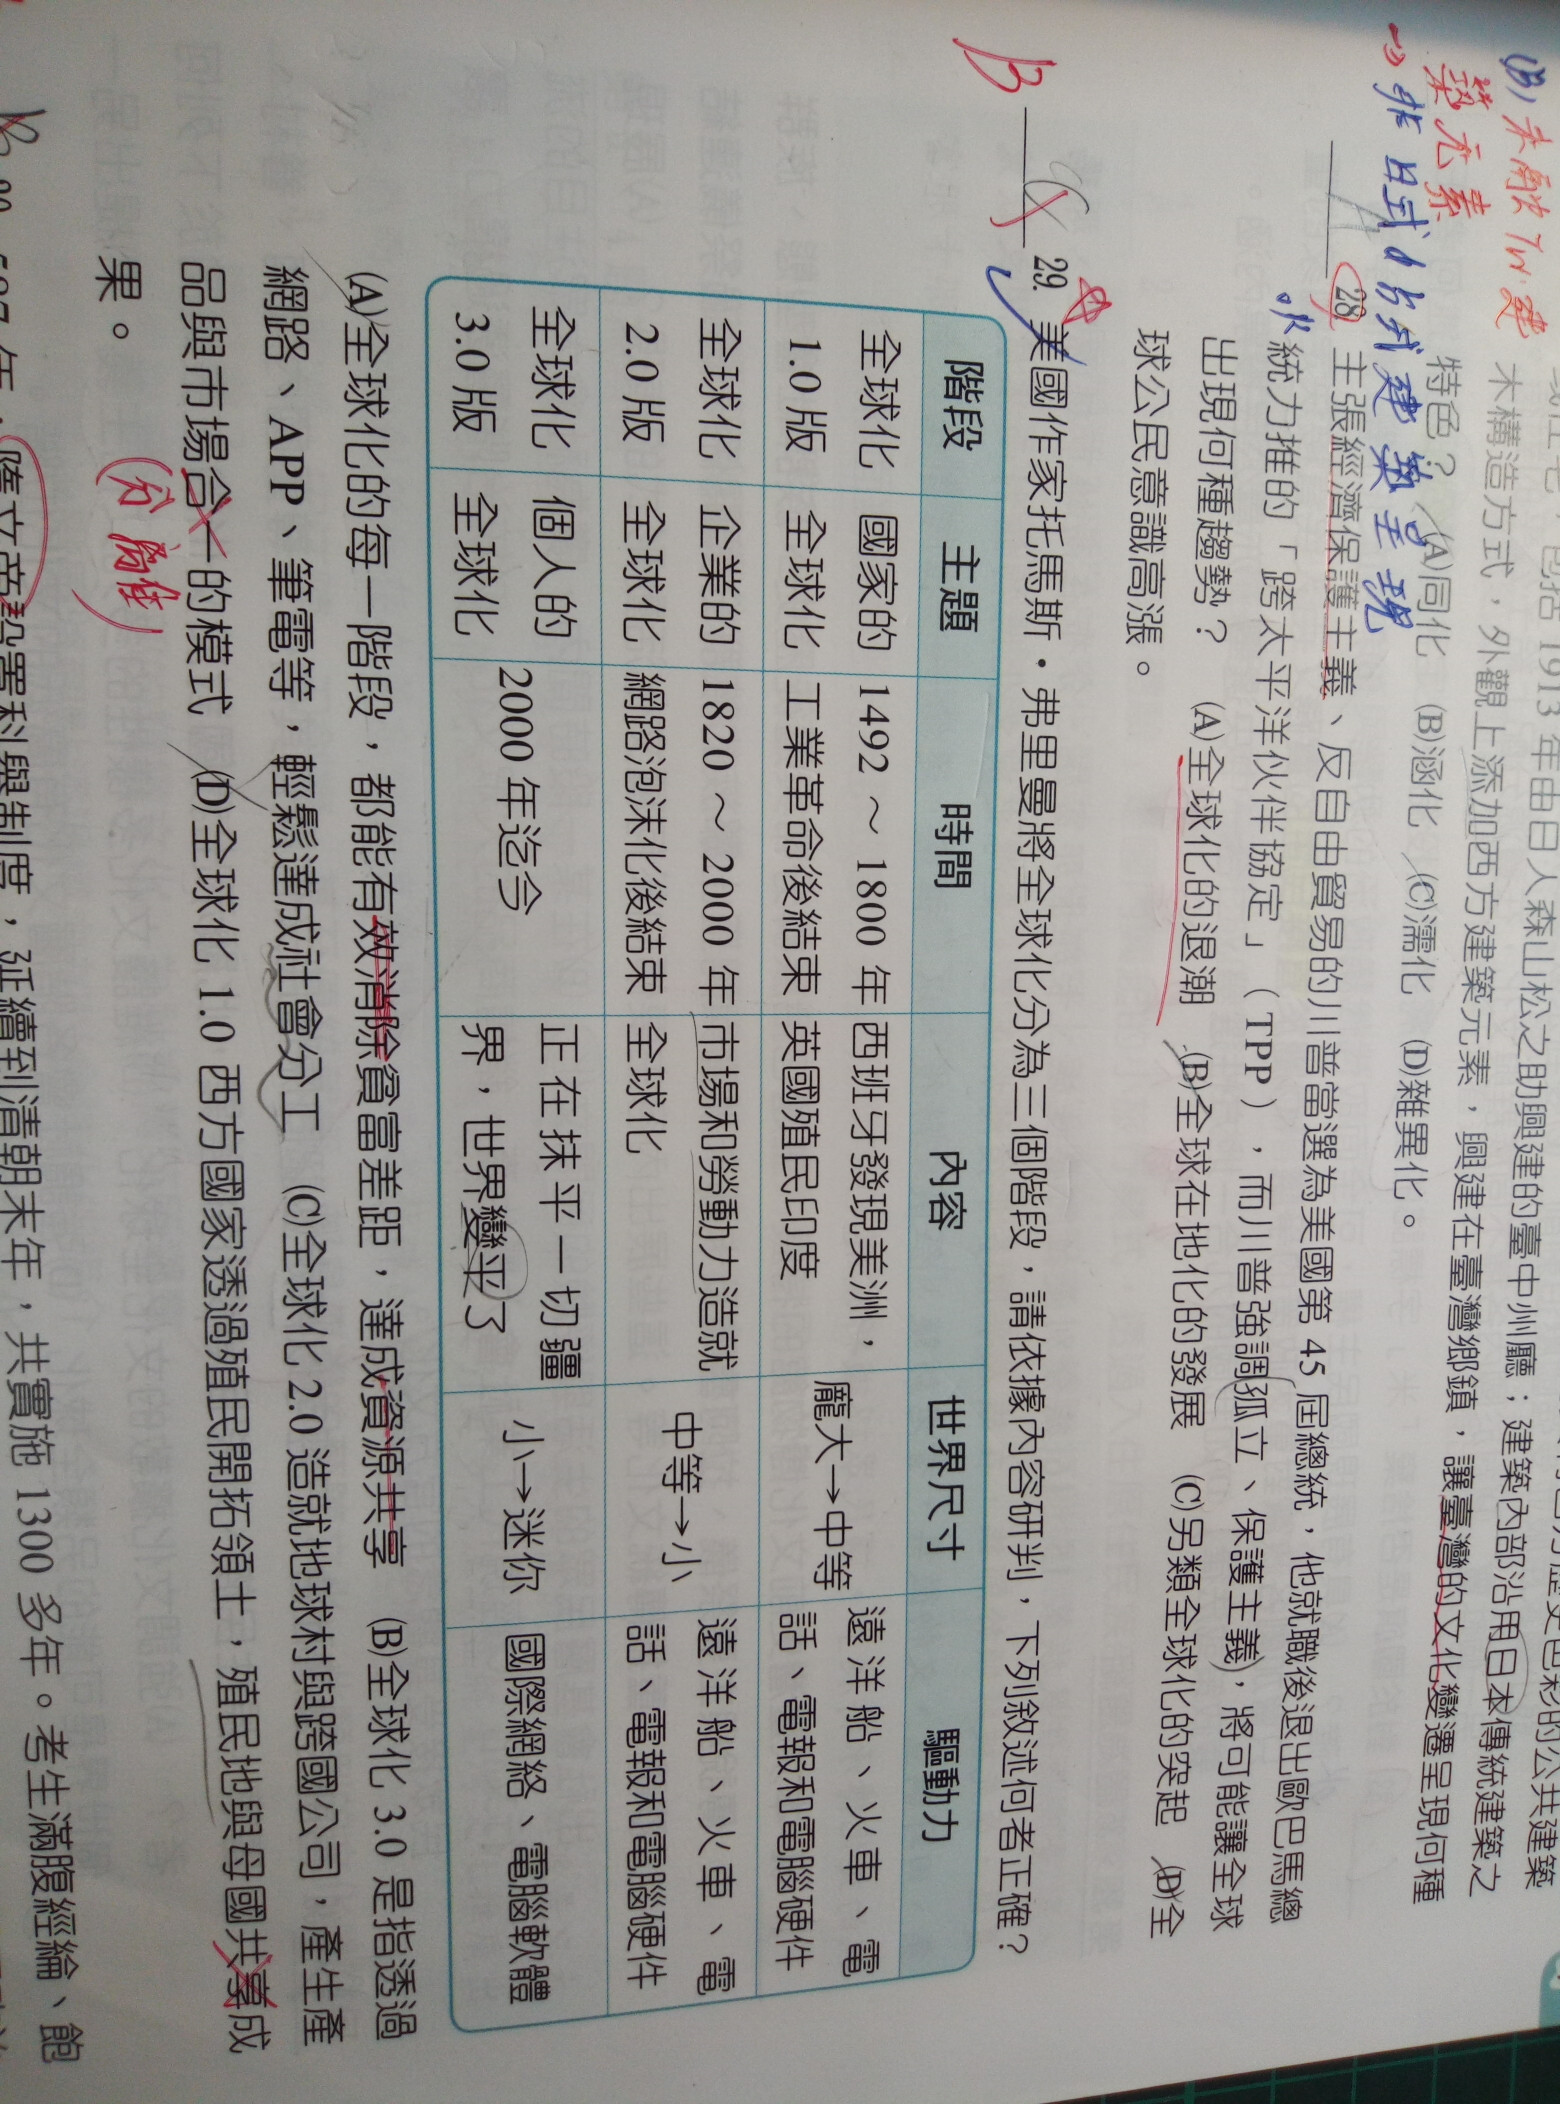 (B)
築元素
→非日式
建築呈現
包括 1913 年由日人森山松之助興建的臺中州廳；建築
木構造方式，外觀上添加西方建築元素，興建在臺灣鄉鎮，讓臺灣的文化變遷呈現何種
建築內部沿用日本傳統建築之
特色？ (A)同化 (B)涵化 (C)濡化 (D)雜異化。
A 28. 主張經濟保護主義、反自由貿易的川普當選為美國第 45 屆總統，他就職後退出歐巴馬總
統力推的「跨太平洋伙伴協定」（TPP），而川普強調孤立、保護主義，將可能讓全球
出現何種趨勢？ (A)全球化的退潮 (B)全球在地化的發展 (C)另類全球化的突起 (D)全
球公民意識高漲。
B 29. 美國作家托馬斯・弗里曼將全球化分為三個階段，請依據內容研判，下列敘述何者正確？
階段 主題 時間 內容 世界尺寸 驅動力
全球化 國家的 1492 ～ 1800 年 西班牙發現美洲， 龐大→中等 遠洋船、火車、電
1.0 版 全球化 工業革命後結束 英國殖民印度 話、電報和電腦硬件
全球化 企業的 1820 ～ 2000 年 市場和勞動力造就 中等→小 遠洋船、火車、電
2.0 版 全球化 網路泡沫化後結束 全球化 話、電報和電腦硬件
全球化 個人的 2000 年迄今 正在抹平一切疆 小→迷你 國際網絡、電腦軟體
3.0 版 全球化 界，世界變平了
(A)全球化的每一階段，都能有效消除貧富差距，達成資源共享 (B)全球化 3.0 是指透過
網路、APP、筆電等，輕鬆達成社會分工 (C)全球化 2.0 造就地球村與跨國公司，產生產
品與市場合一的模式 (D)全球化 1.0 西方國家透過殖民開拓領土，殖民地與母國共享成
果。
587 年，隋文帝設置科舉制度，延續到清朝末年，共實施 1300 多年。考生滿腹經綸、飽